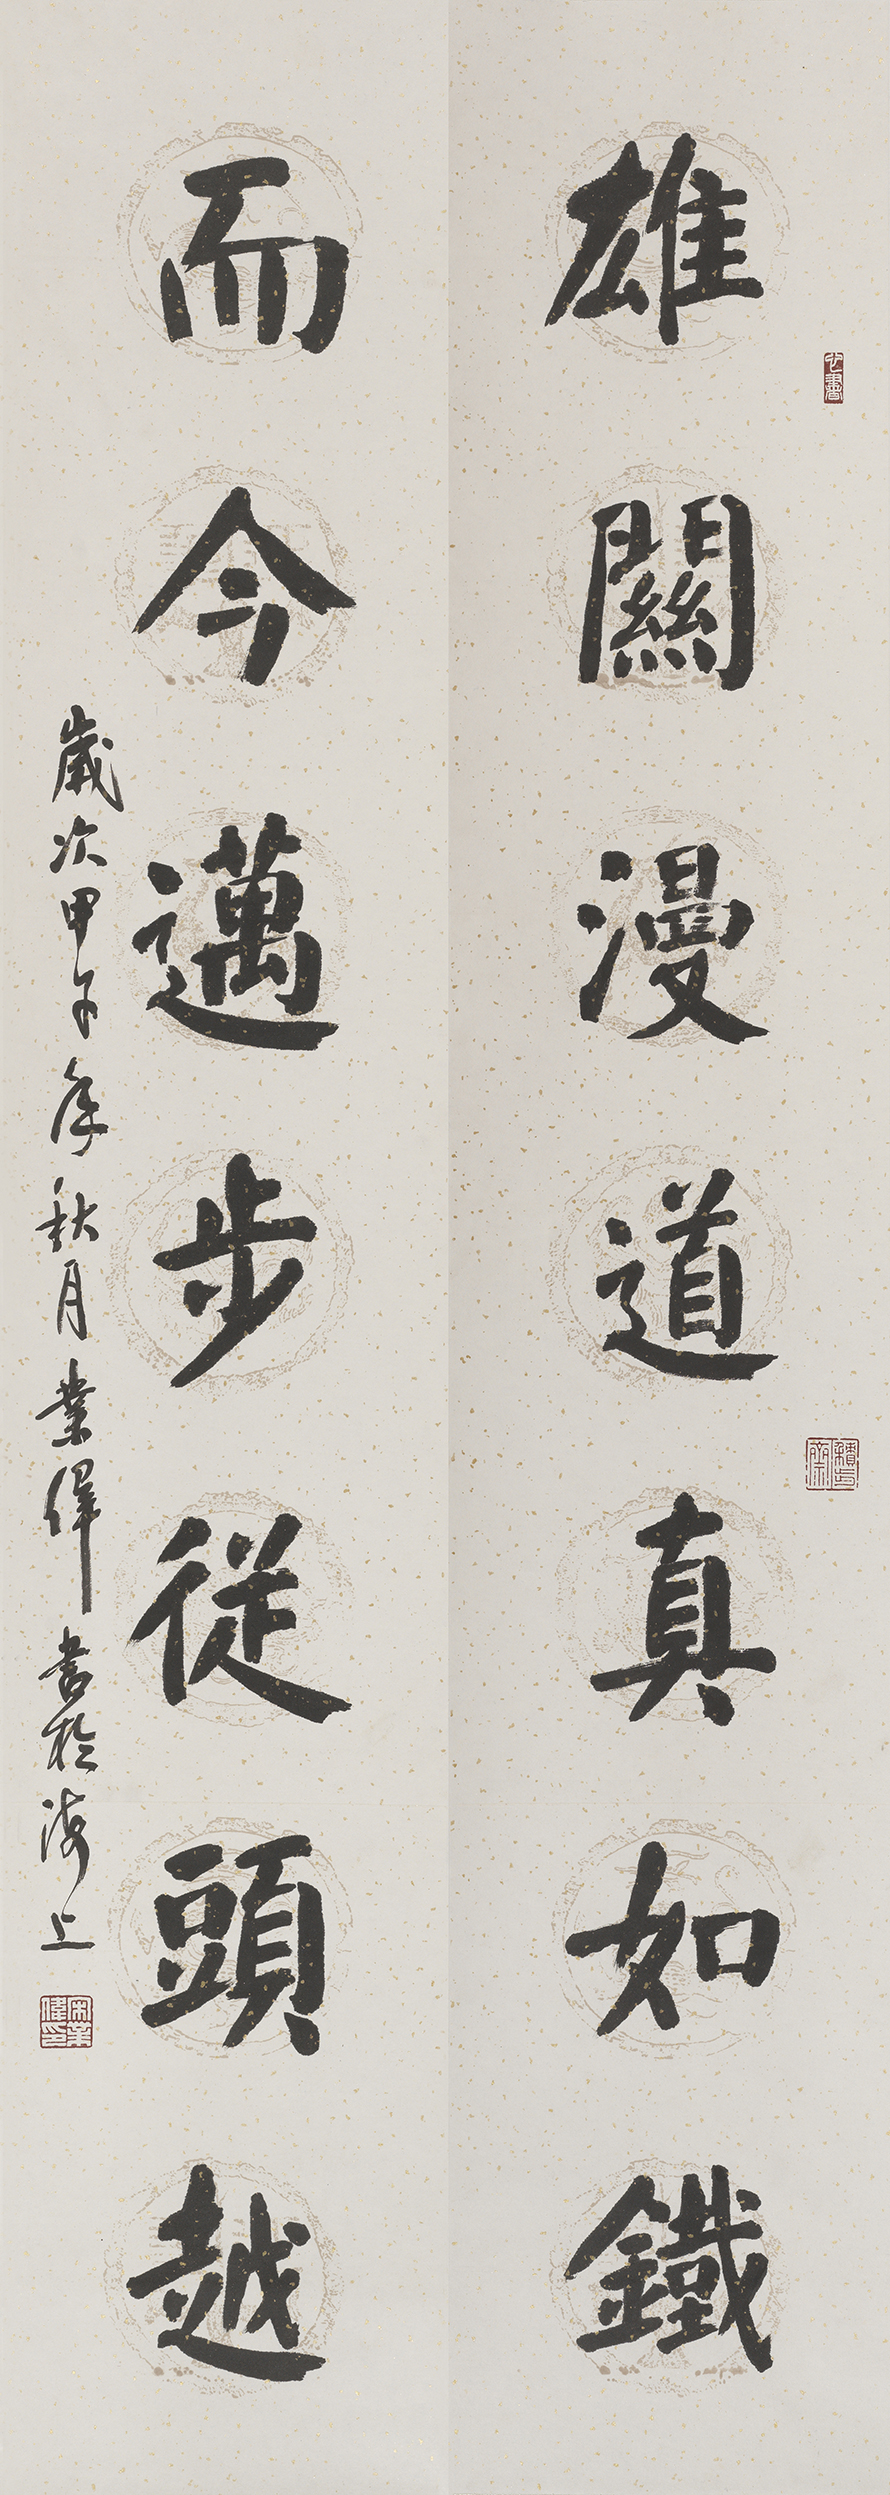 雄關漫道真如鐵
而今邁步從頭越
歲次甲午年秋月業偉書於海上
宋業偉印